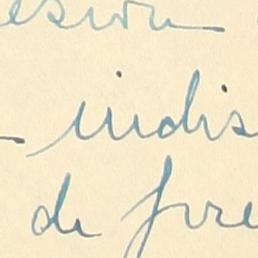 esion
- indis
de fre